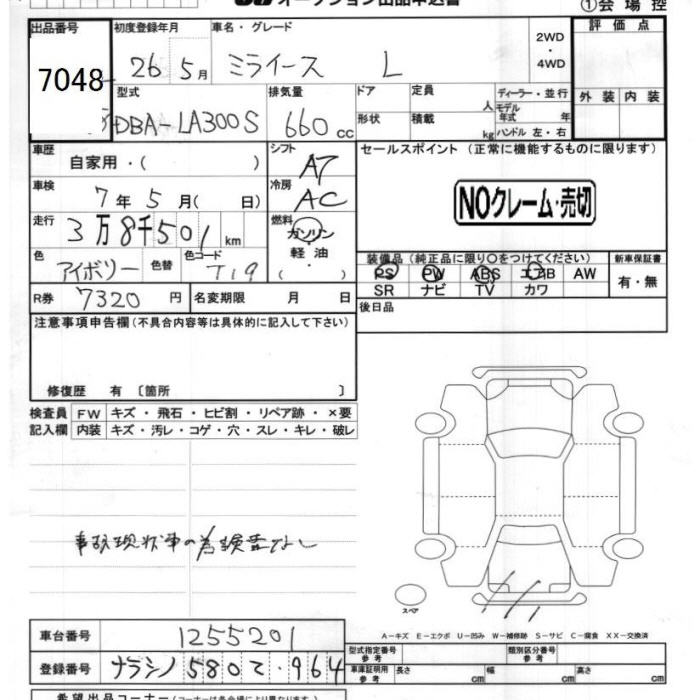 オークション出品申込書 ①会場控
出品番号 初度登録年月 車名・グレード 2WD・4WD 評価点
7048 26年5月 ミライース L
型式 排気量 ドア 定員 人 ディーラー・並行 外装 内装
DBA-LA300S 660cc 形状 積載 kg モデル年式 年 ハンドル 左・右
車歴 自家用・( ) シフト AT セールスポイント (正常に機能するものに限ります)
車検 7年5月( 日) 冷房 AC
NOクレーム・売切
走行 3万8千501km 燃料 ガソリン 軽油 ( ・ )
色 アイボリー 色替 色コード T19
装備品 (純正品に限り○をつけてください) 新車保証書
PS PW ABS エアB AW 有・無
SR ナビ TV カワ
R券 7320円 名変期限 月 日 後日品
注意事項申告欄 (不具合内容等は具体的に記入して下さい)
修復歴 有 〔箇所 〕
検査員 FW キズ・飛石・ヒビ割・リペア跡・×要
記入欄 内装 キズ・汚レ・コゲ・穴・スレ・キレ・破レ
事故現状車の為検査なし
スペア
A-キズ E-エクボ U-凹み W-補修跡 S-サビ C-腐食 XX-交換済
車台番号 1255201 型式指定番号 参考 類別区分番号 参考
登録番号 ナラシノ580 964 車庫証明用 参考 長さ cm 幅 cm 高さ cm
希望出品コーナー